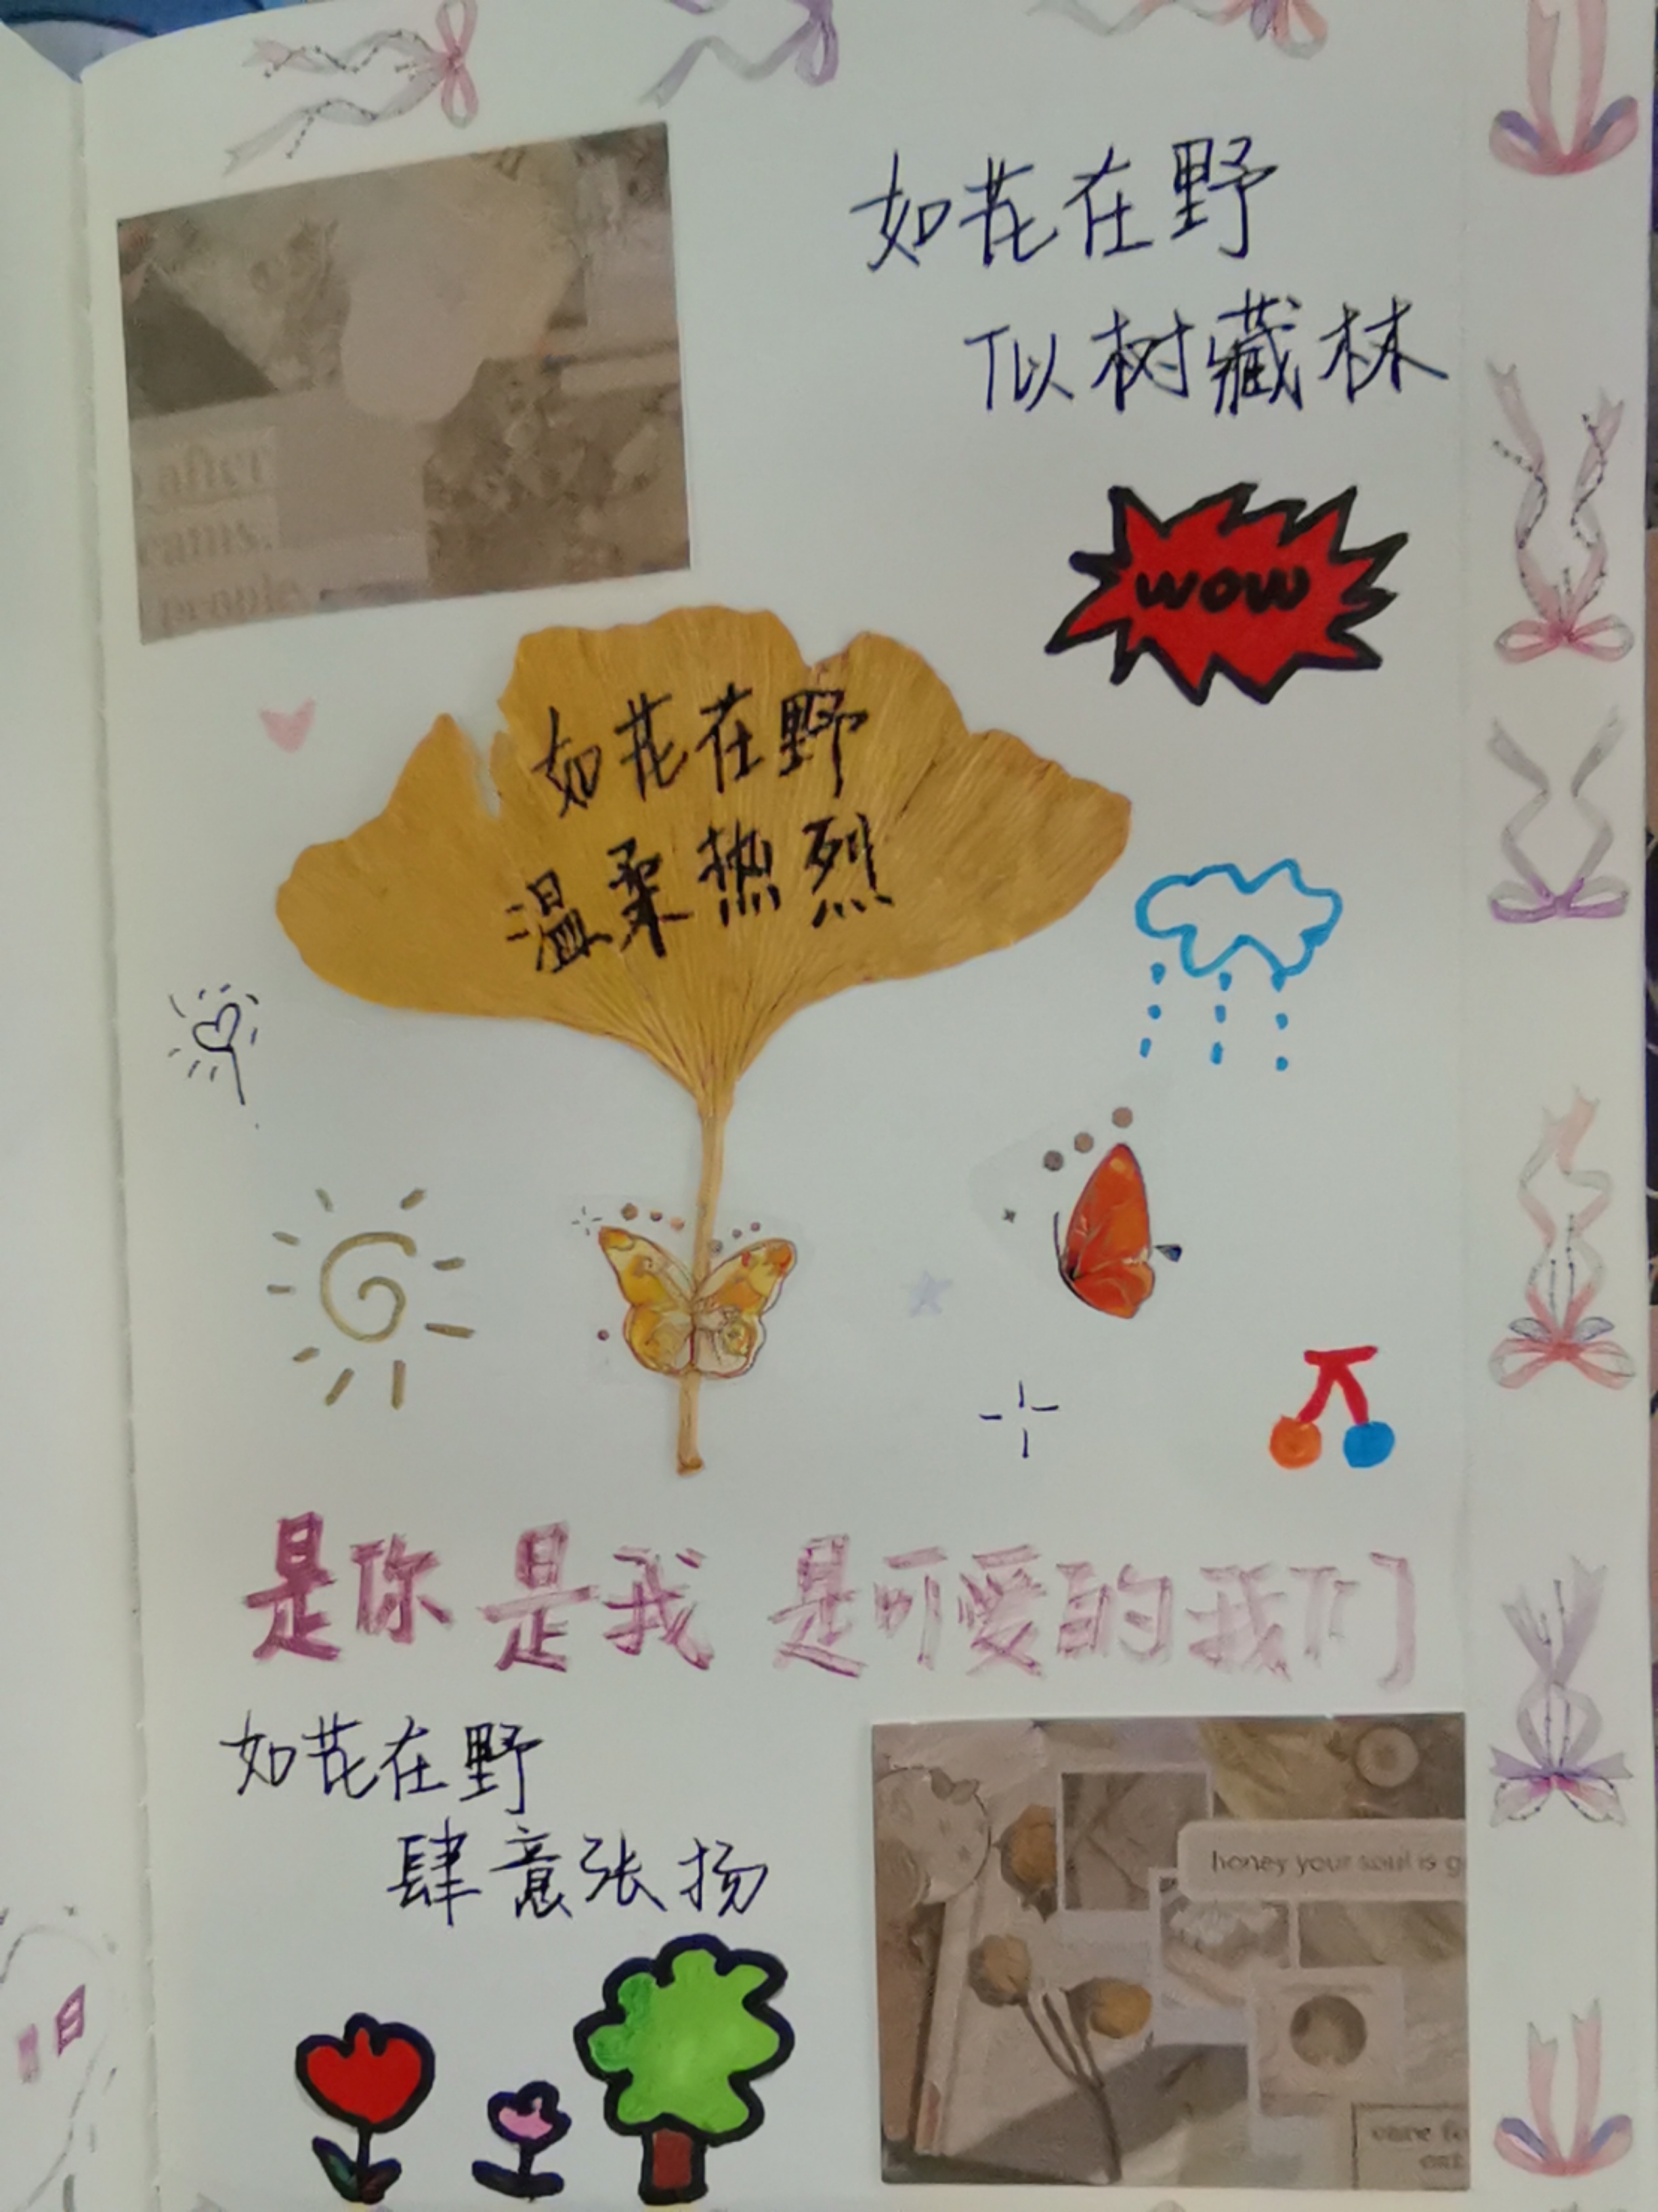 如花在野
似树藏林
after
eams.
people
wow
如花在野
温柔热烈
是你是我 是可爱的我们
如花在野
肆意张扬
honey your soul is g